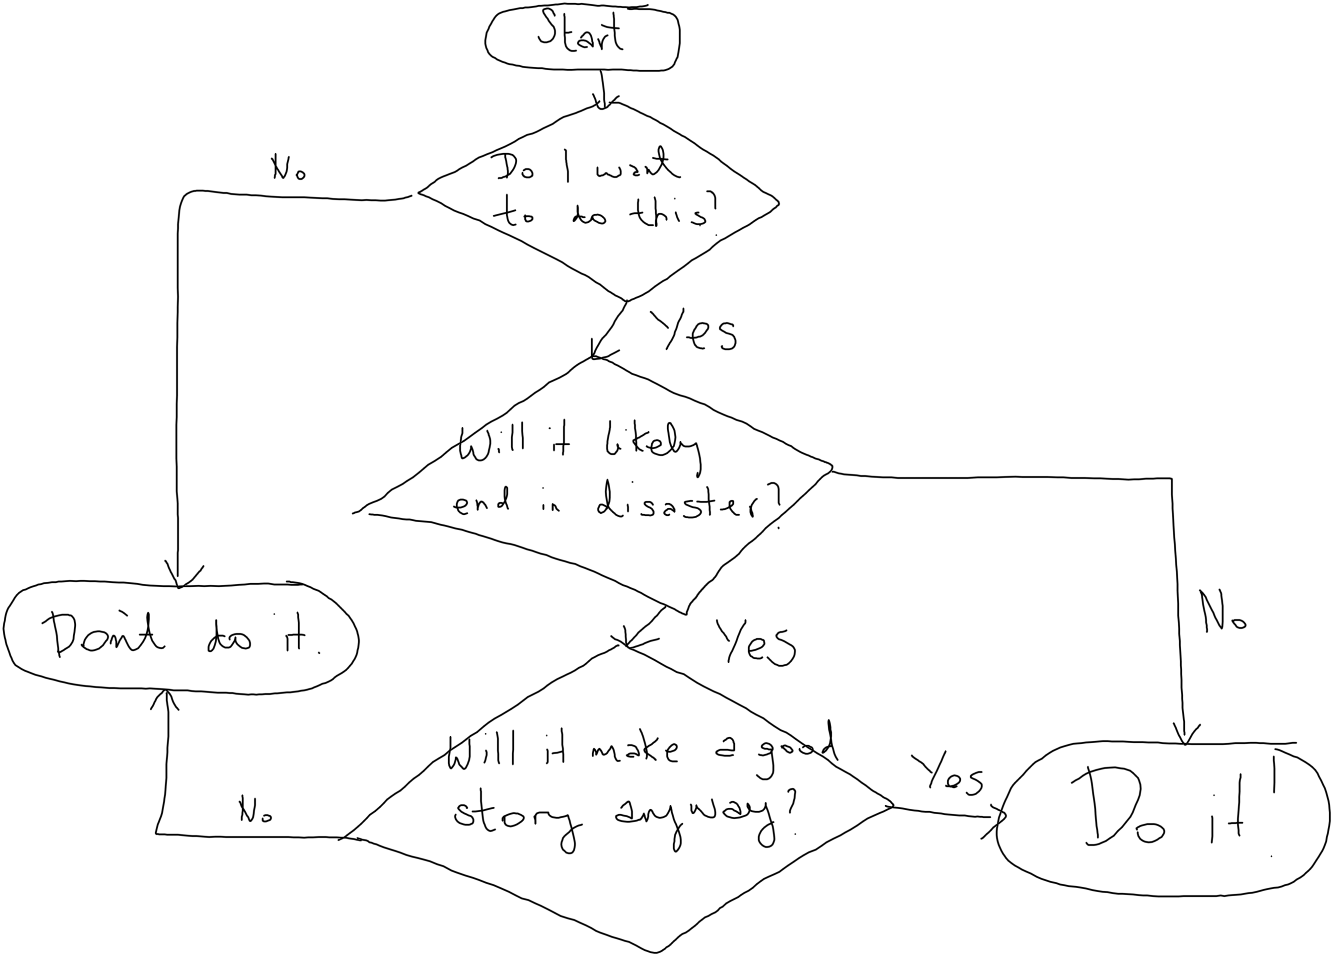 Start
No
Do I want
to do this?
Yes
Will it likely
end in disaster?
Don't do it.
No
Yes
Will it make a good
story anyway?
Yes
No
Do it!